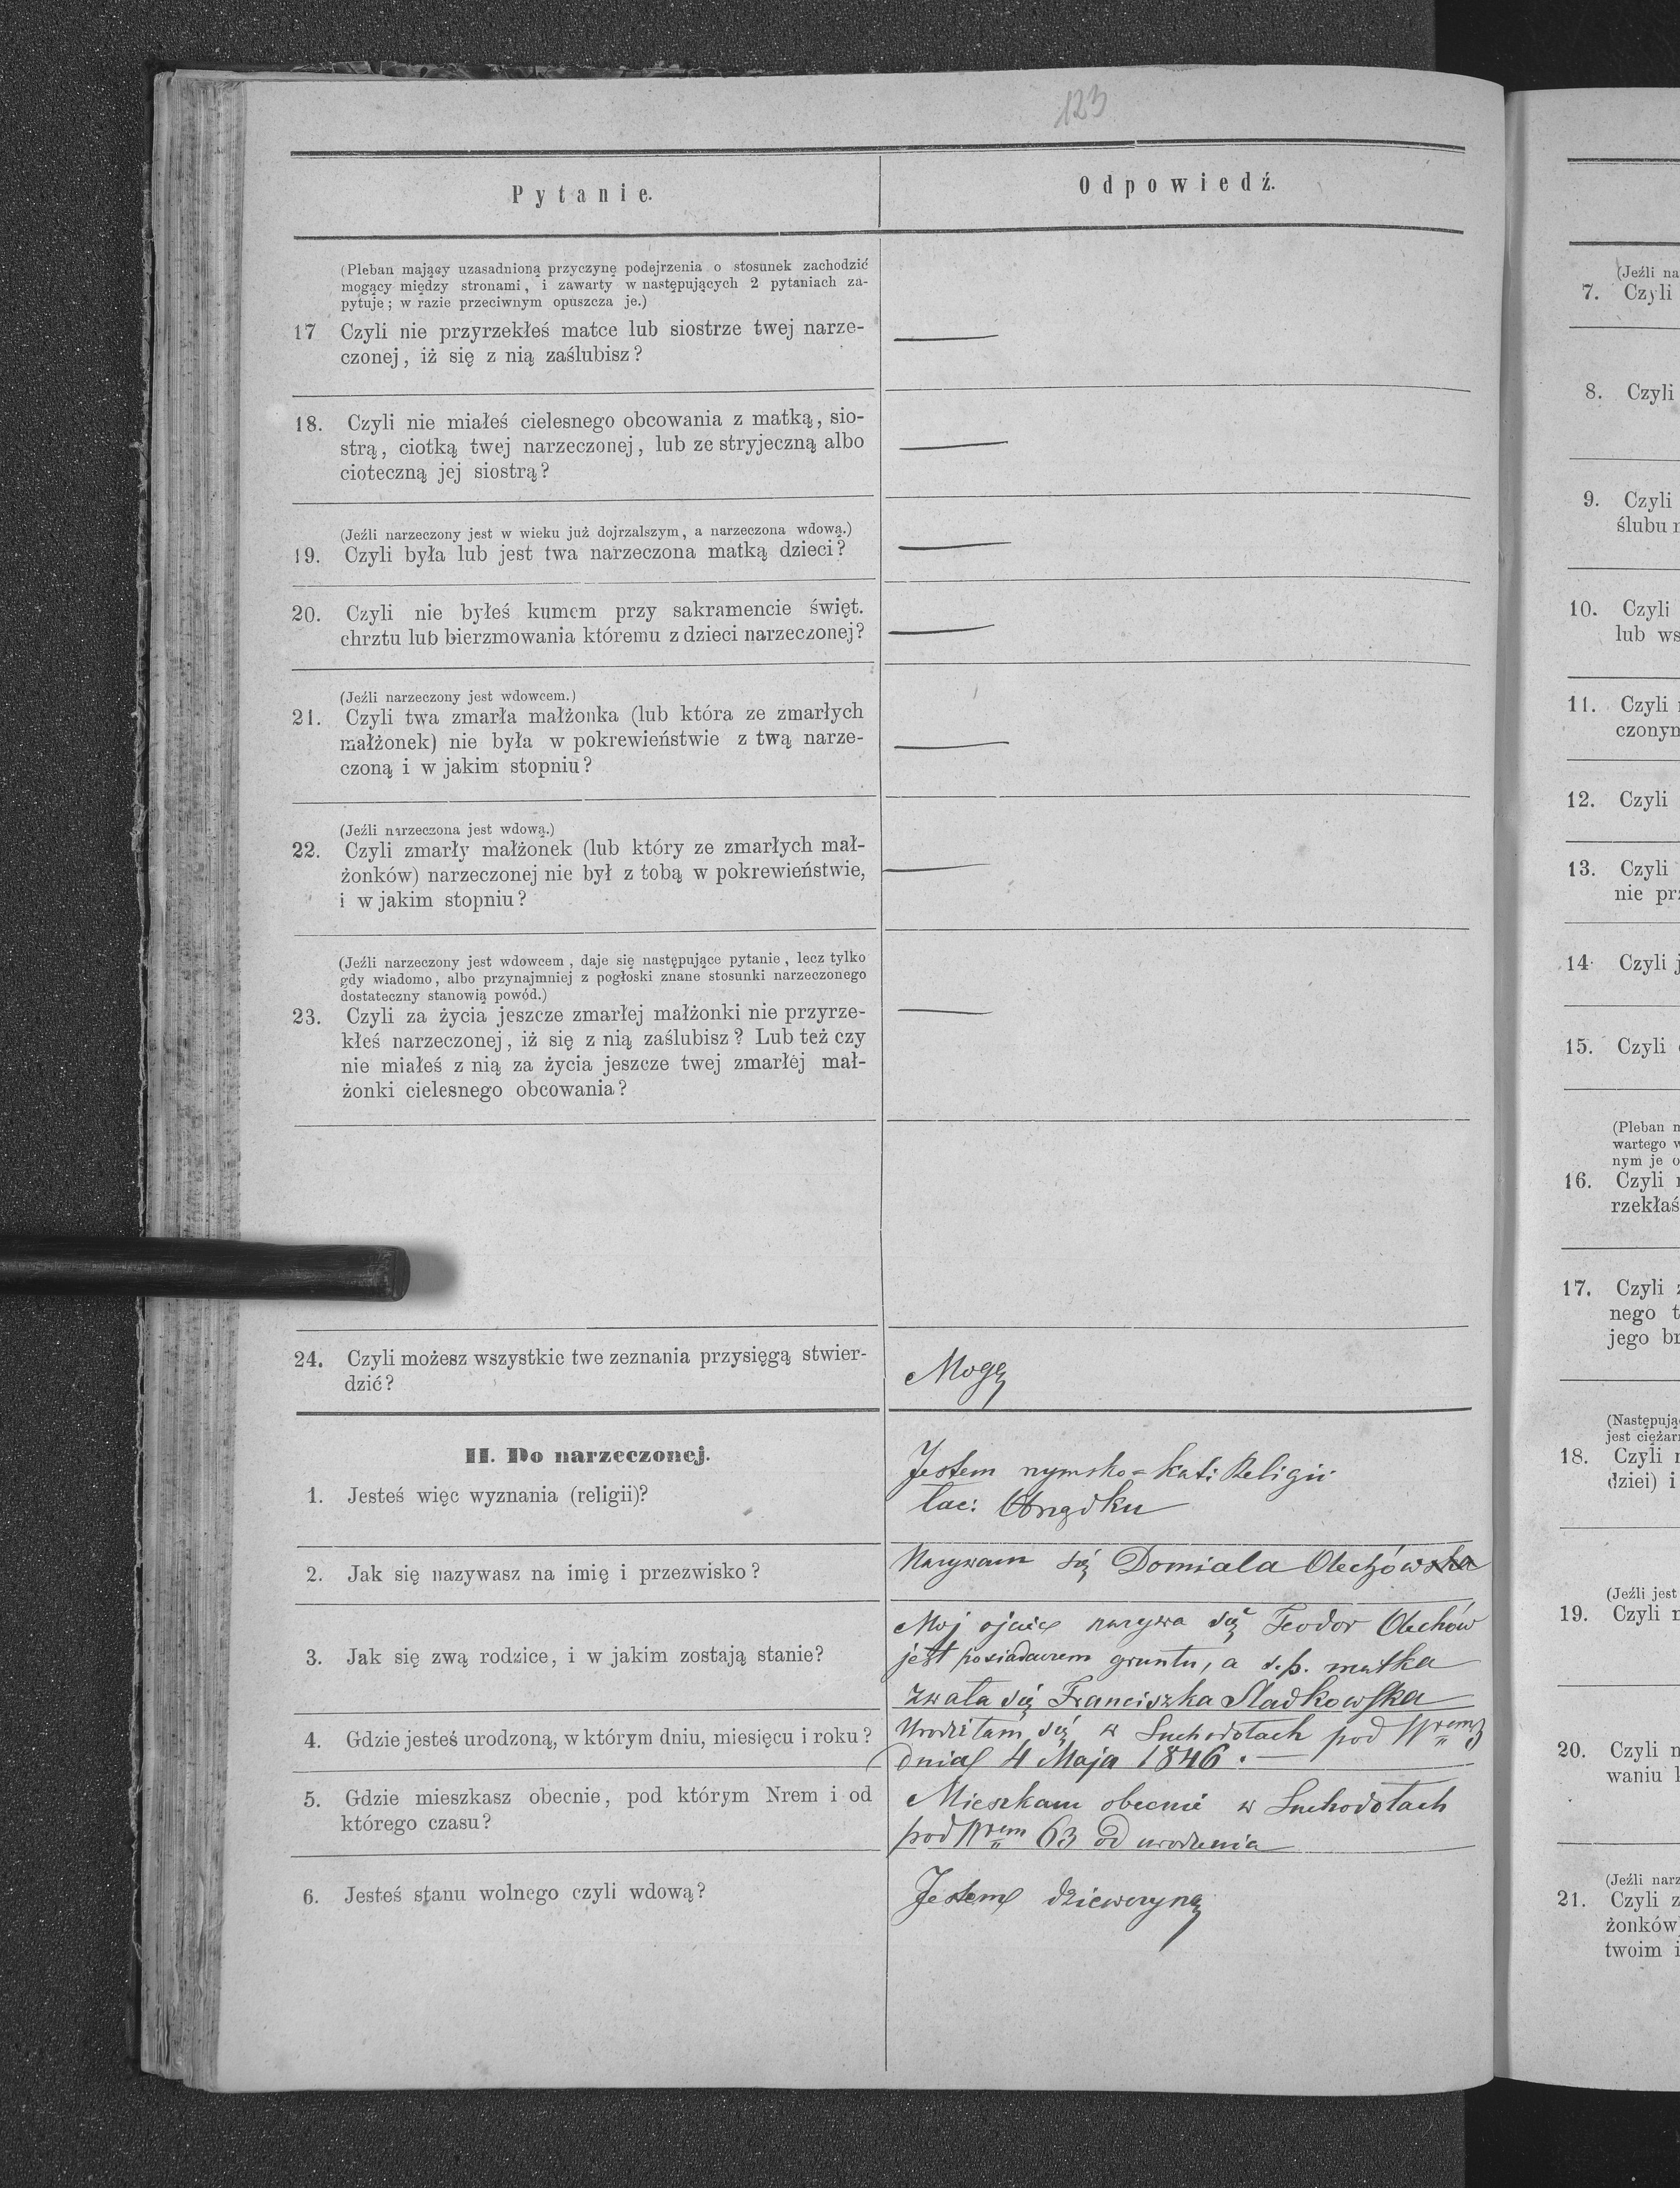 123
Pytanie.
Odpowiedź.
(Pleban mający uzasadnioną przyczynę podejrzenia o stosunek zachodzić
mogący między stronami, i zawarty w następujących 2 pytaniach za-
pytuje; w razie przeciwnym opuszcza je.)
17 Czyli nie przyrzekłeś matce lub siostrze twej narze-
czonej, iż się z nią zaślubisz?
18. Czyli nie miałeś cielesnego obcowania z matką, sio-
strą, ciotką twej narzeczonej, lub ze stryjeczną albo
cioteczną jej siostrą?
(Jeźli narzeczony jest w wieku już dojrzalszym, a narzeczona wdową.)
19. Czyli była lub jest twa narzeczona matką dzieci?
20. Czyli nie byłeś kumem przy sakramencie święt.
chrztu lub bierzmowania któremu z dzieci narzeczonej?
(Jeźli narzeczony jest wdowcem.)
21. Czyli twa zmarła małżonka (lub która ze zmarłych
małżonek) nie była w pokrewieństwie z twą narze-
czoną i w jakim stopniu?
(Jeźli narzeczona jest wdową.)
22. Czyli zmarły małżonek (lub który ze zmarłych mał-
żonków) narzeczonej nie był z tobą w pokrewieństwie,
i w jakim stopniu?
(Jeźli narzeczony jest wdowcem, daje się następujące pytanie, lecz tylko
gdy wiadomo, albo przynajmniej z pogłoski znane stosunki narzeczonego
dostateczny stanowią powód.)
23. Czyli za życia jeszcze zmarłej małżonki nie przyrze-
kłeś narzeczonej, iż się z nią zaślubisz? Lub też czy
nie miałeś z nią za życia jeszcze twej zmarłej mał-
żonki cielesnego obcowania?
24. Czyli możesz wszystkie twe zeznania przysięgą stwier-
dzić?
Mogę
II. Do narzeczonej.
1. Jesteś więc wyznania (religii)?
Jestem rymsko=kat: Religii
łac: Obrządku
2. Jak się nazywasz na imię i przezwisko?
Nazywam się Domicela Olechów
3. Jak się zwą rodzice, i w jakim zostają stanie?
Mój ojciec nazywa się Teodor Olechów
jest posiadaczem gruntu, a s.p. matka
zwała się Franciszka Sladkowska
4. Gdzie jesteś urodzoną, w którym dniu, miesięcu i roku?
Urodziłam się w Suchodołach pod Nrem
dnia 4 Maja 1846.
5. Gdzie mieszkasz obecnie, pod którym Nrem i od
którego czasu?
Mieszkam obecnie w Suchodołach
pod Nrem 63 od urodzenia
6. Jesteś stanu wolnego czyli wdową?
Jestem dziewczyną
(Jeźli na
7. Czyli
8. Czyli
9. Czyli
ślubu
10. Czyli
lub ws
11. Czyli
czonyn
12. Czyli
13. Czyli
nie prz
14. Czyli j
15. Czyli
(Pleban m
wartego w
nym je o
16. Czyli
rzekłaś
17. Czyli
nego t
jego br
(Następują
jest ciężar
18. Czyli
dziei) i
(Jeźli jest
19. Czyli
20. Czyli
waniu
(Jeźli narz
21. Czyli z
żonków
twoim i